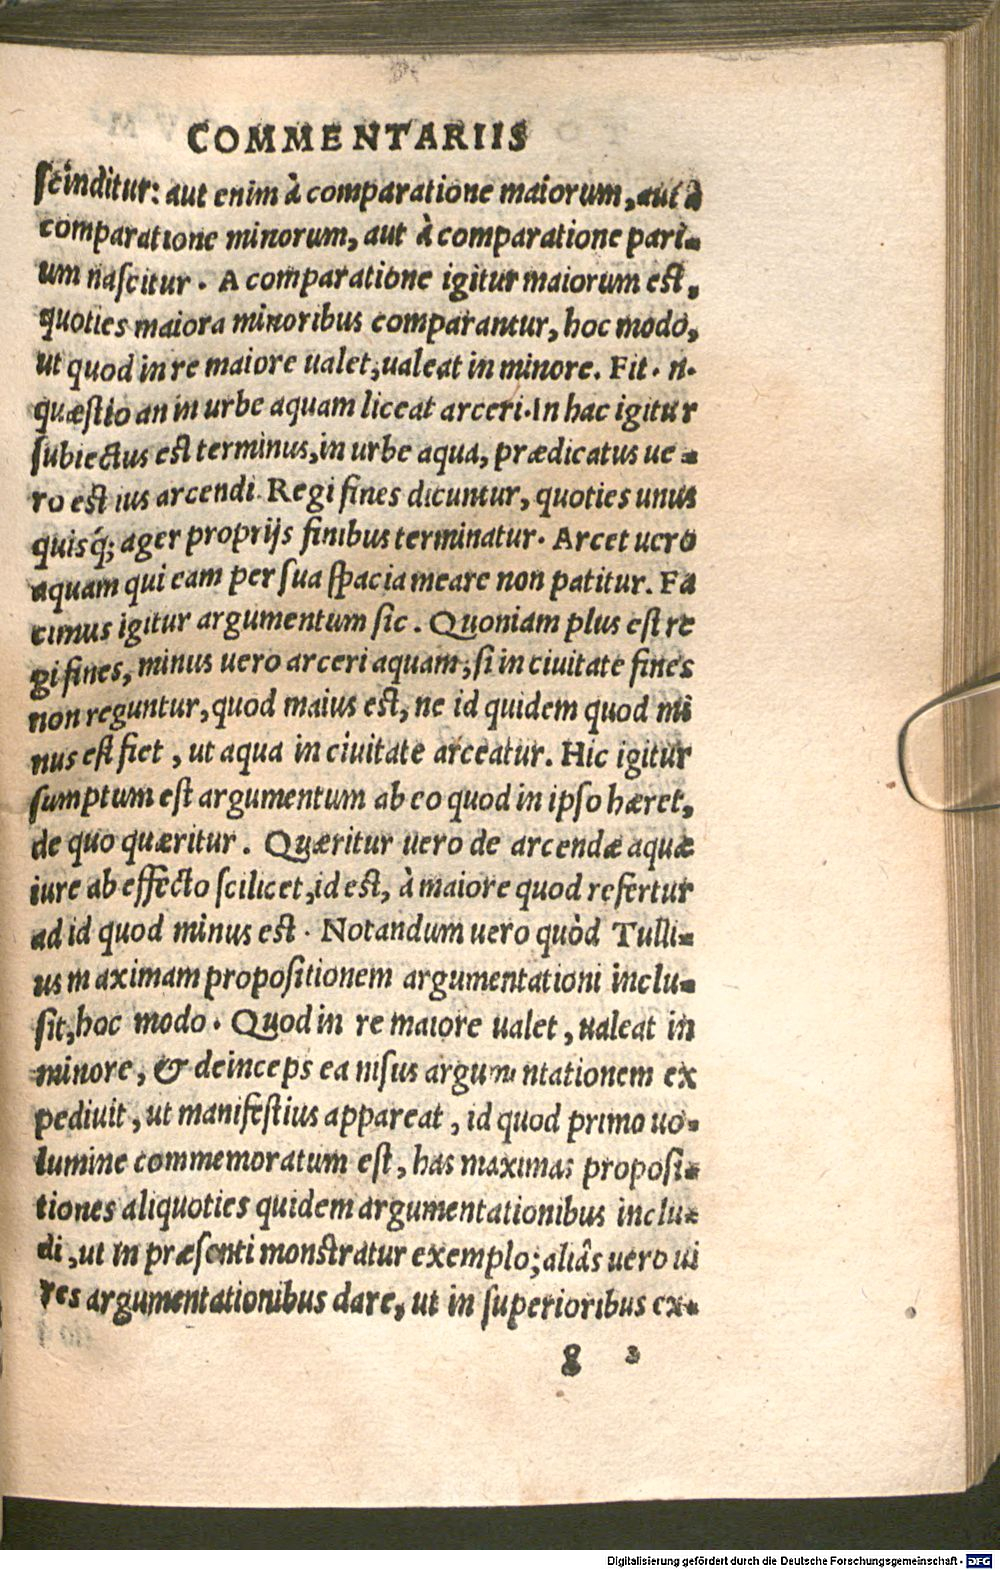 COMMENTARIIS
scinditur: aut enim à comparatione maiorum, aut à
comparatione minorum, aut à comparatione pari-
um nascitur. A comparatione igitur maiorum est,
quoties maiora minoribus comparantur, hoc modo,
ut quod in re maiore ualet, ualeat in minore. Fit. n.
quæstio an in urbe aquam liceat arceri. In hac igitur
subiectus est terminus, in urbe aqua, prædicatus ue-
ro est ius arcendi. Regi fines dicuntur, quoties unus
quisq; ager proprijs finibus terminatur. Arcet uero
aquam qui eam per sua spacia meare non patitur. Fa
cimus igitur argumentum sic. Quoniam plus est re
gi fines, minus uero arceri aquam, si in ciuitate fines
non reguntur, quod maius est, ne id quidem quod mi
nus est fiet, ut aqua in ciuitate arceatur. Hic igitur
sumptum est argumentum ab eo quod in ipso hæret,
de quo quæritur. Quæritur uero de arcendæ aquæ
iure ab effecto scilicet, id est, à maiore quod refertur
ad id quod minus est. Notandum uero quòd Tulli-
us maximam propositionem argumentationi inclu-
sit, hoc modo. Quod in re maiore ualet, ualeat in
minore, & deinceps ea nisus argumentationem ex
pediuit, ut manifestius appareat, id quod primo uo-
lumine commemoratum est, has maximas proposi-
tiones aliquoties quidem argumentationibus inclu-
di, ut in præsenti monstratur exemplo; aliâs uero ui
res argumentationibus dare, ut in superioribus ex-
g 3
Digitalisierung gefördert durch die Deutsche Forschungsgemeinschaft - DFG